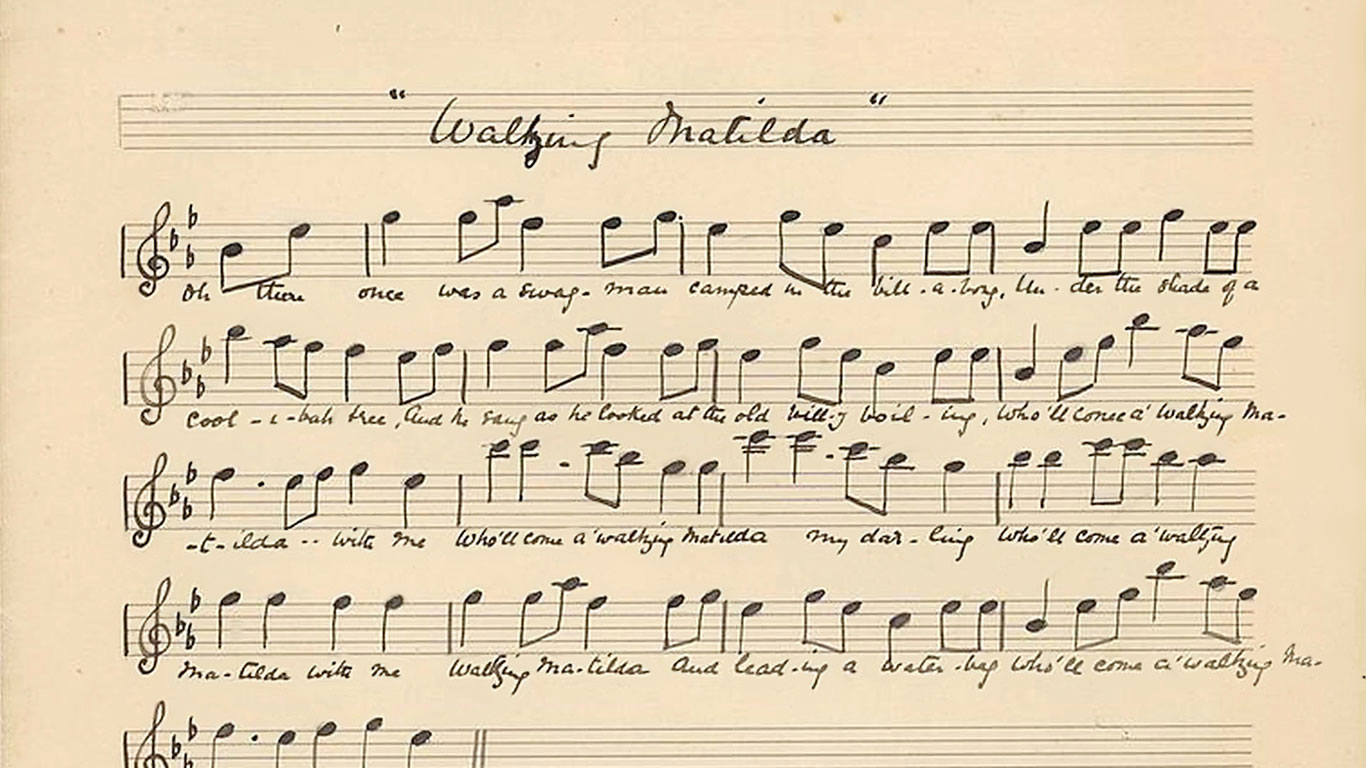 "Waltzing Matilda"
Oh there once was a swag-man camped in the bill-a-bong, Un-der the shade of a
cool-i-bah tree, And he sang as he looked at the old bill-y boil-ing, who'll come a' waltzing Ma-
-t-ilda -- with me Who'll come a' waltzing Matilda my dar-ling Who'll come a' waltzing
Ma-tilda with me Waltzing Ma-tilda And lead-ing a water-bag who'll come a' waltzing Ma-